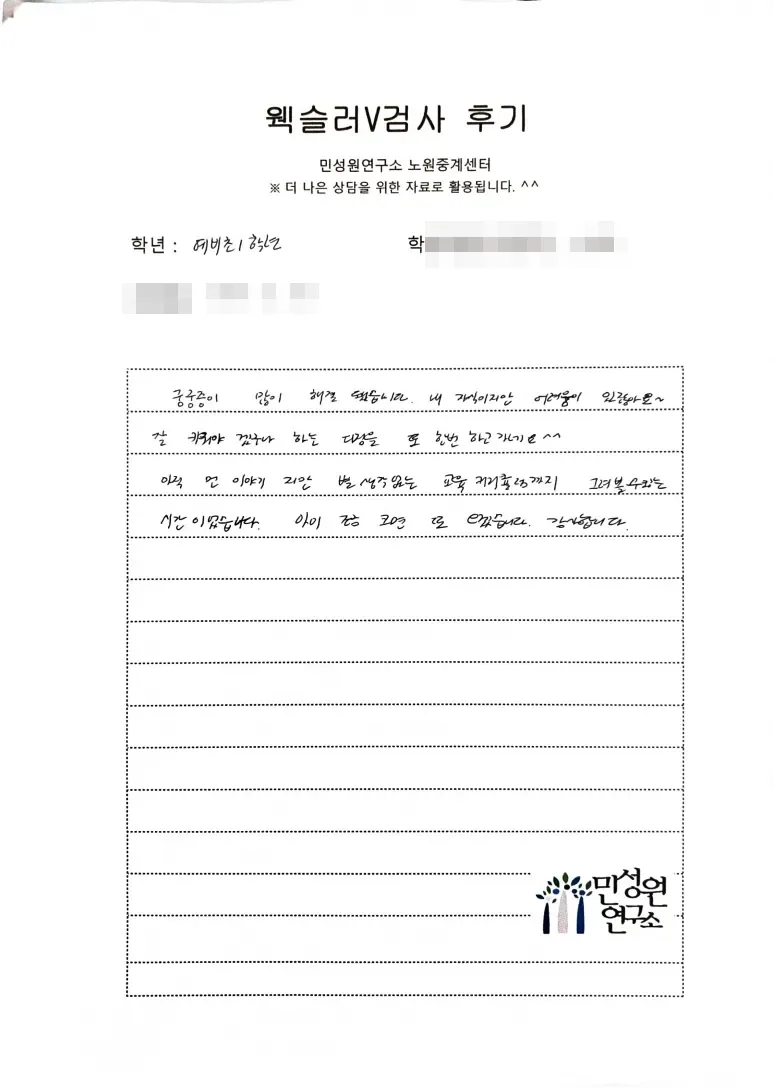 웩슬러V검사 후기
민성원연구소 노원중계센터
※ 더 나은 상담을 위한 자료로 활용됩니다. ^^
학년 : 예비초1학년
학
궁금증이 많이 해결 됐습니다. 내 자식이지만 어려움이 있잖아요~
잘 키워야 겠구나 하는 다짐을 또 한번 하고가네요^^
아직 먼 이야기 지만 별 생각없는 교육 커리큘럼까지 그려볼 수있는
시간 이었습니다. 아이 좀 크면 또 오겠습니다. 감사합니다.
민성원
연구소